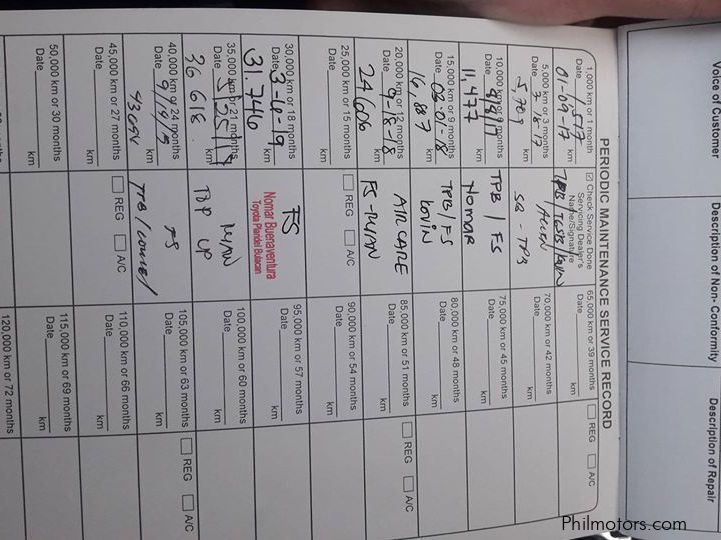 PERIODIC MAINTENANCE SERVICE RECORD
1,000 km or 1 month
Date
01-09-17
1,517
km
Check Service Done
Servicing Dealer's
Name/Signature
5,000 km or 3 months
Date 3-18-17
5,789
km
SB - TPB
10,000 km or 6 months
Date 8/8/17
11,477
km
TPB / FS
Nomar
15,000 km or 9 months
Date 03-01-18
16,887
km
TPB / FS
KOVIN
20,000 km or 12 months
Date 9-18-18
24606
km
AIR CARE
FS - RYAN
25,000 km or 15 months
Date
km
REG A/C
30,000 km or 18 months
Date 3-6-19
31,746
km
FS
Nomar Buenaventura
Toyota Plaridel Bulacan
35,000 km or 21 months
Date
36 618
km
RYAN
40,000 km or 24 months
Date 9/19/19
km
FS
45,000 km or 27 months
Date
km
REG A/C
50,000 km or 30 months
Date
km
65,000 km or 39 months
Date
km
REG A/C
70,000 km or 42 months
Date
km
75,000 km or 45 months
Date
km
80,000 km or 48 months
Date
km
85,000 km or 51 months
Date
km
REG A/C
90,000 km or 54 months
Date
km
95,000 km or 57 months
Date
km
100,000 km or 60 months
Date
km
105,000 km or 63 months
Date
km
REG A/C
110,000 km or 66 months
Date
km
115,000 km or 69 months
Date
km
120,000 km or 72 months
Voice of Customer
Description of Non- Conformity
Description of Repair
Philmotors.com